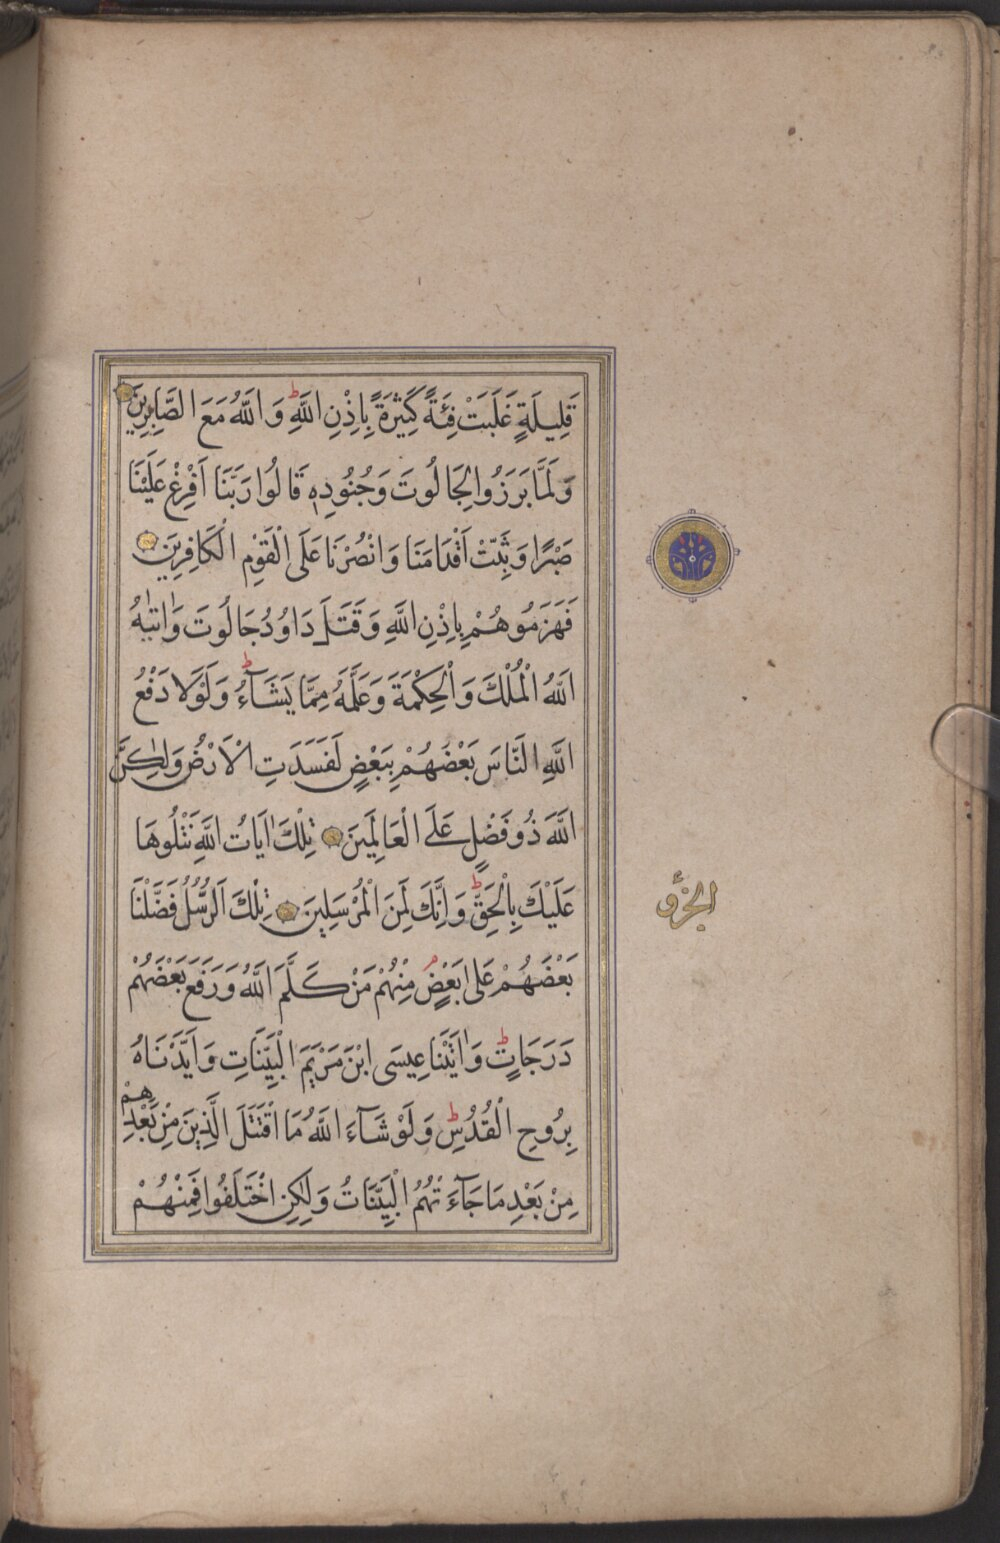 قَلِيلَةٍ غَلَبَتْ فِئَةً كَثِيْرَةً بِاِذْنِ اللّٰهِ ط وَاللّٰهُ مَعَ الصَّابِرِينَ
وَلَمَّا بَرَزُوا لِجَالُوتَ وَجُنُودِهِ قَالُوا رَبَّنَا اَفْرِغْ عَلَيْنَا
صَبْرًا وَثَبِّتْ اَقْدَامَنَا وَانْصُرْنَا عَلَى الْقَوْمِ الْكَافِرِينَ
فَهَزَمُوهُمْ بِاِذْنِ اللّٰهِ وَقَتَلَ دَاوُدُ جَالُوتَ وَاٰتٰيهُ
اللّٰهُ الْمُلْكَ وَالْحِكْمَةَ وَعَلَّمَهُ مِمَّا يَشَآءُ ط وَلَوْلَا دَفْعُ
اللّٰهِ النَّاسَ بَعْضَهُمْ بِبَعْضٍ لَفَسَدَتِ الْاَرْضُ وَلٰكِنَّ
اللّٰهَ ذُو فَضْلٍ عَلَى الْعَالَمِينَ تِلْكَ اٰيَاتُ اللّٰهِ نَتْلُوهَا
عَلَيْكَ بِالْحَقِّ ط وَاِنَّكَ لَمِنَ الْمُرْسَلِينَ تِلْكَ الرُّسُلُ فَضَّلْنَا
الجزؤ
بَعْضَهُمْ عَلٰى بَعْضٍ م مِنْهُمْ مَنْ كَلَّمَ اللّٰهُ وَرَفَعَ بَعْضَهُمْ
دَرَجَاتٍ ط وَاٰتَيْنَا عِيسَى ابْنَ مَرْيَمَ الْبَيِّنَاتِ وَاَيَّدْنَاهُ
بِرُوحِ الْقُدُسِ ط وَلَوْ شَآءَ اللّٰهُ مَا اقْتَتَلَ الَّذِينَ مِنْ بَعْدِهِمْ
مِنْ بَعْدِ مَا جَآءَتْهُمُ الْبَيِّنَاتُ وَلٰكِنِ اخْتَلَفُوا فَمِنْهُمْ